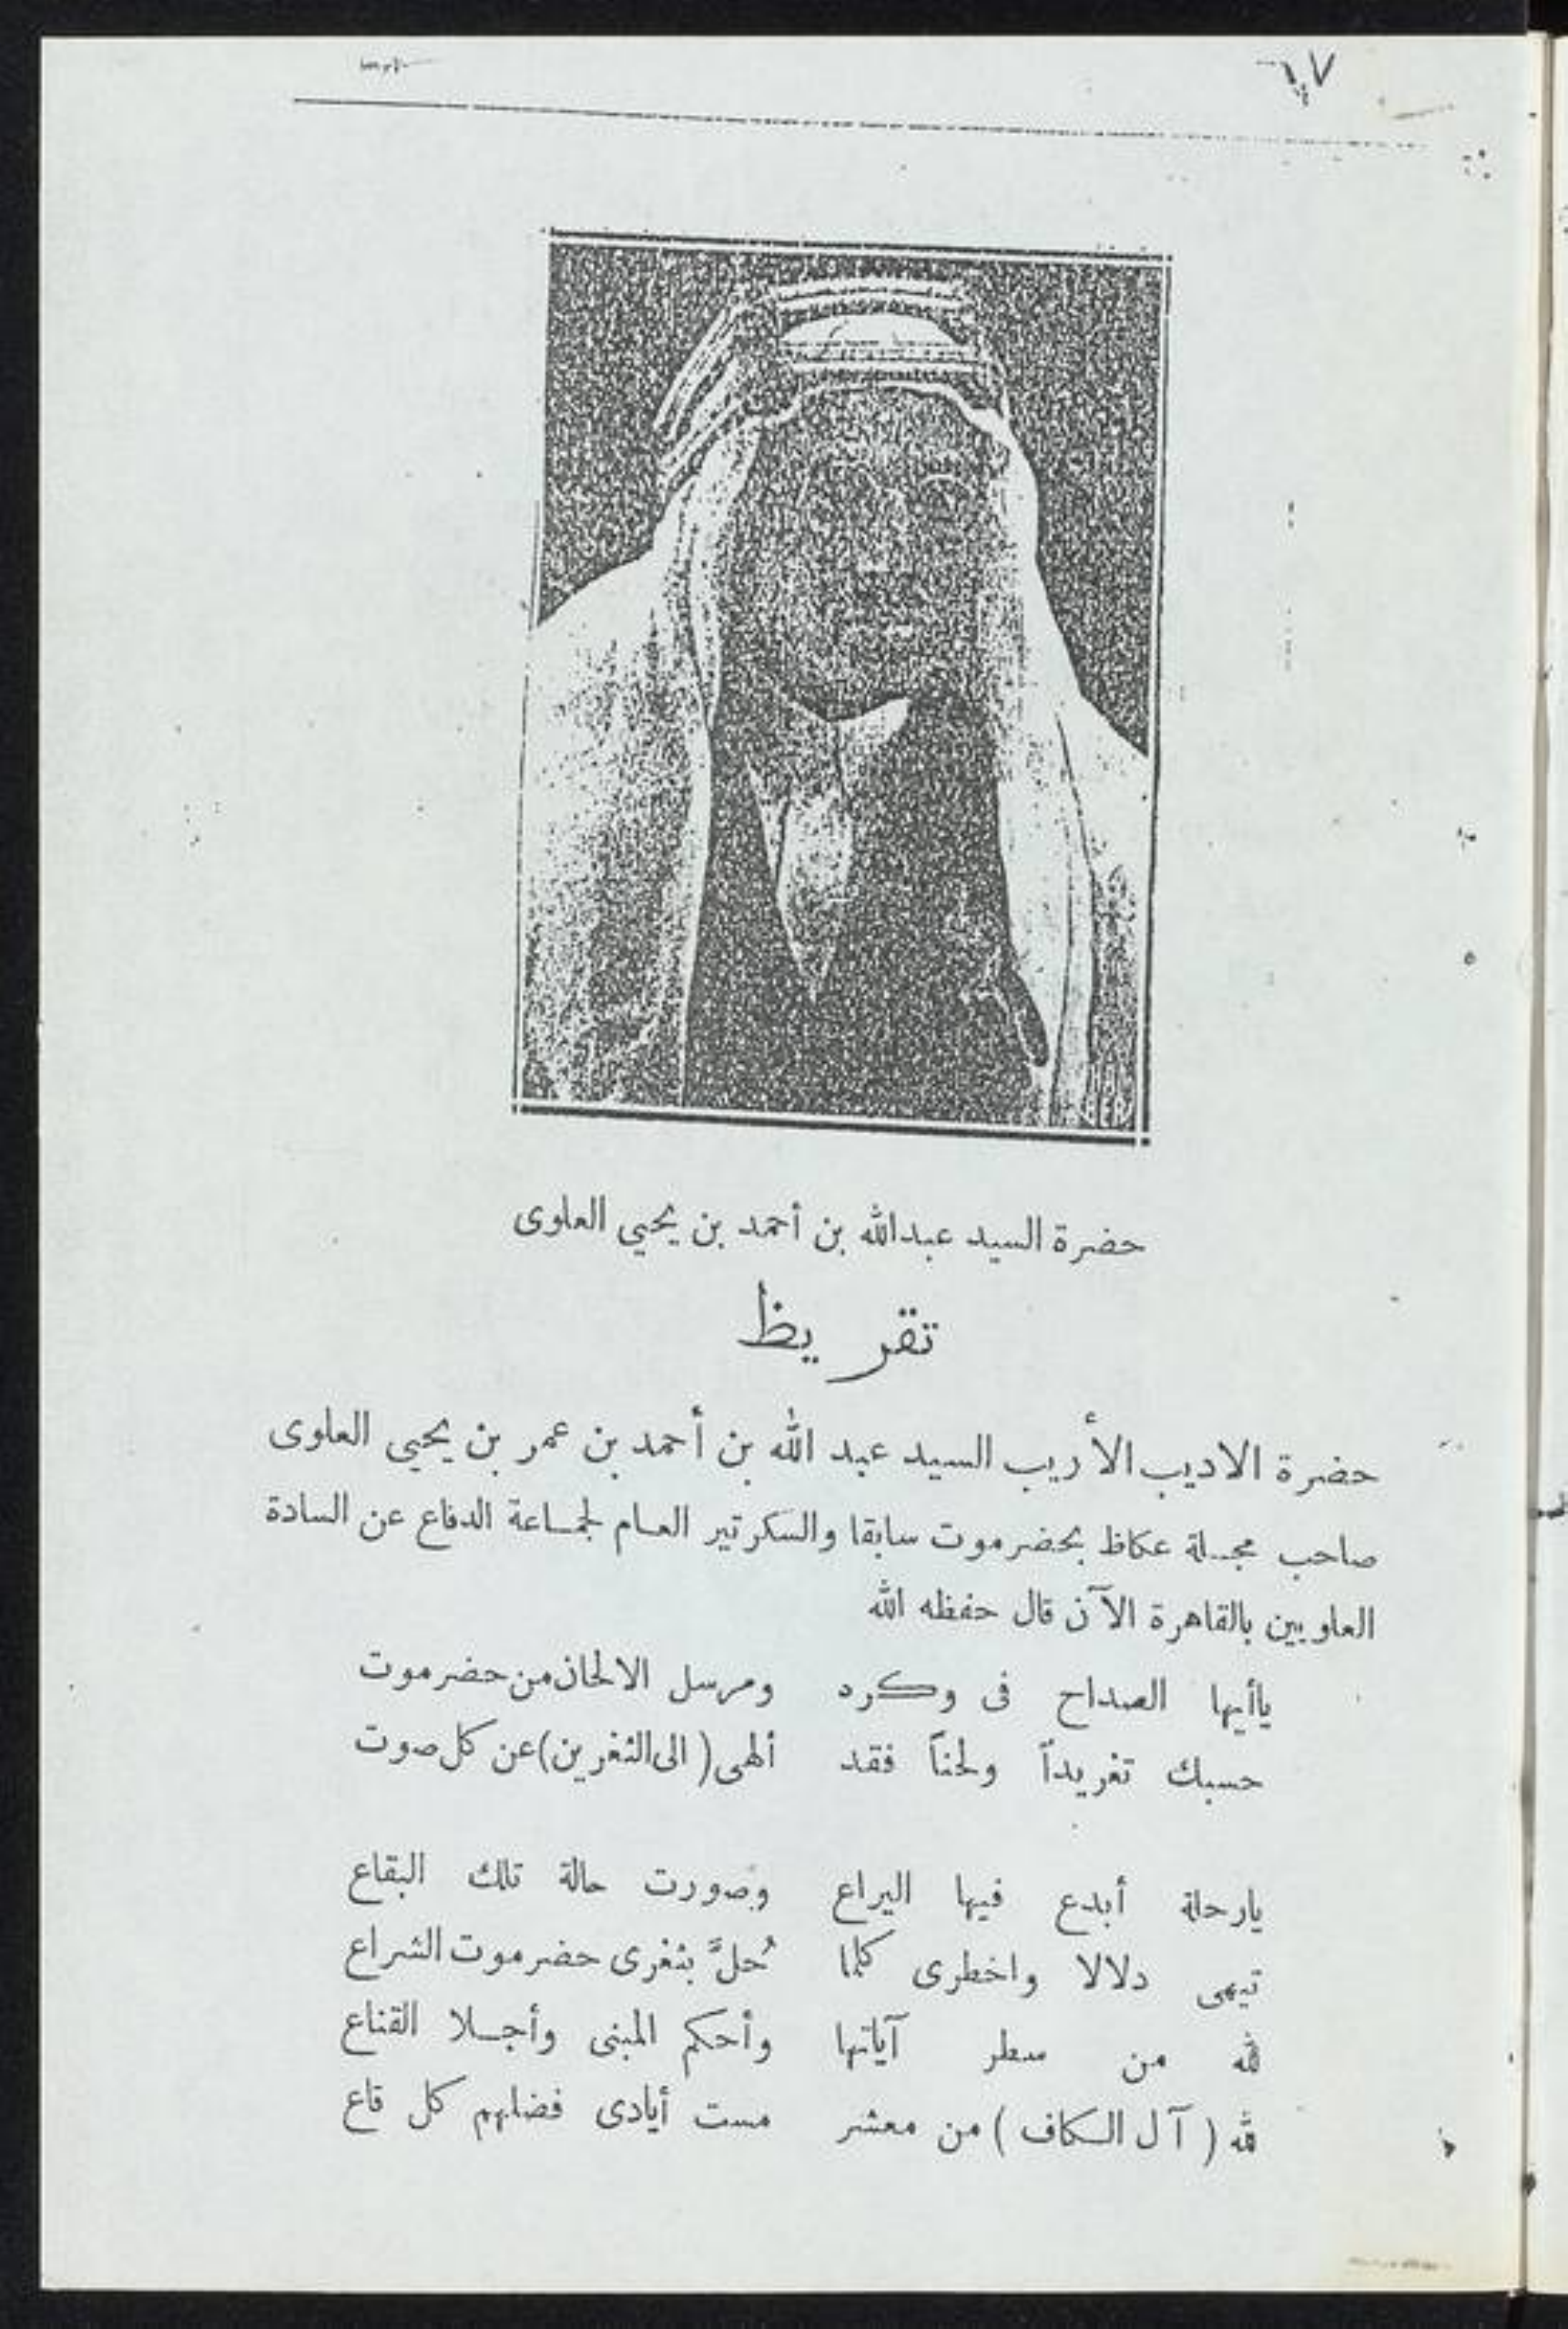 حضرة السيد عبدالله بن أحمد بن يحيي العلوى
تقريظ
حضرة الاديب الأريب السيد عبد الله بن أحمد بن عمر بن يحيي العلوى
صاحب مجلة عكاظ بحضرموت سابقا والسكرتير العام لجماعة الدفاع عن السادة
العلويين بالقاهرة الآن قال حفظه الله
ياأيها الصداح فى وكره ومرسل الالحان من حضرموت
حسبك تغريداً ولحناً فقد ألهى (الى الثغرين) عن كل صوت
يارحلة أبدع فيها اليراع وصورت حالة تلك البقاع
تيهى دلالا واخطرى كلما حُلَّ بثغرى حضرموت الشراع
لله من سطر آياتها وأحكم المبنى وأجلا القناع
لله (آل الكاف) من معشر مست أيادى فضلهم كل قاع